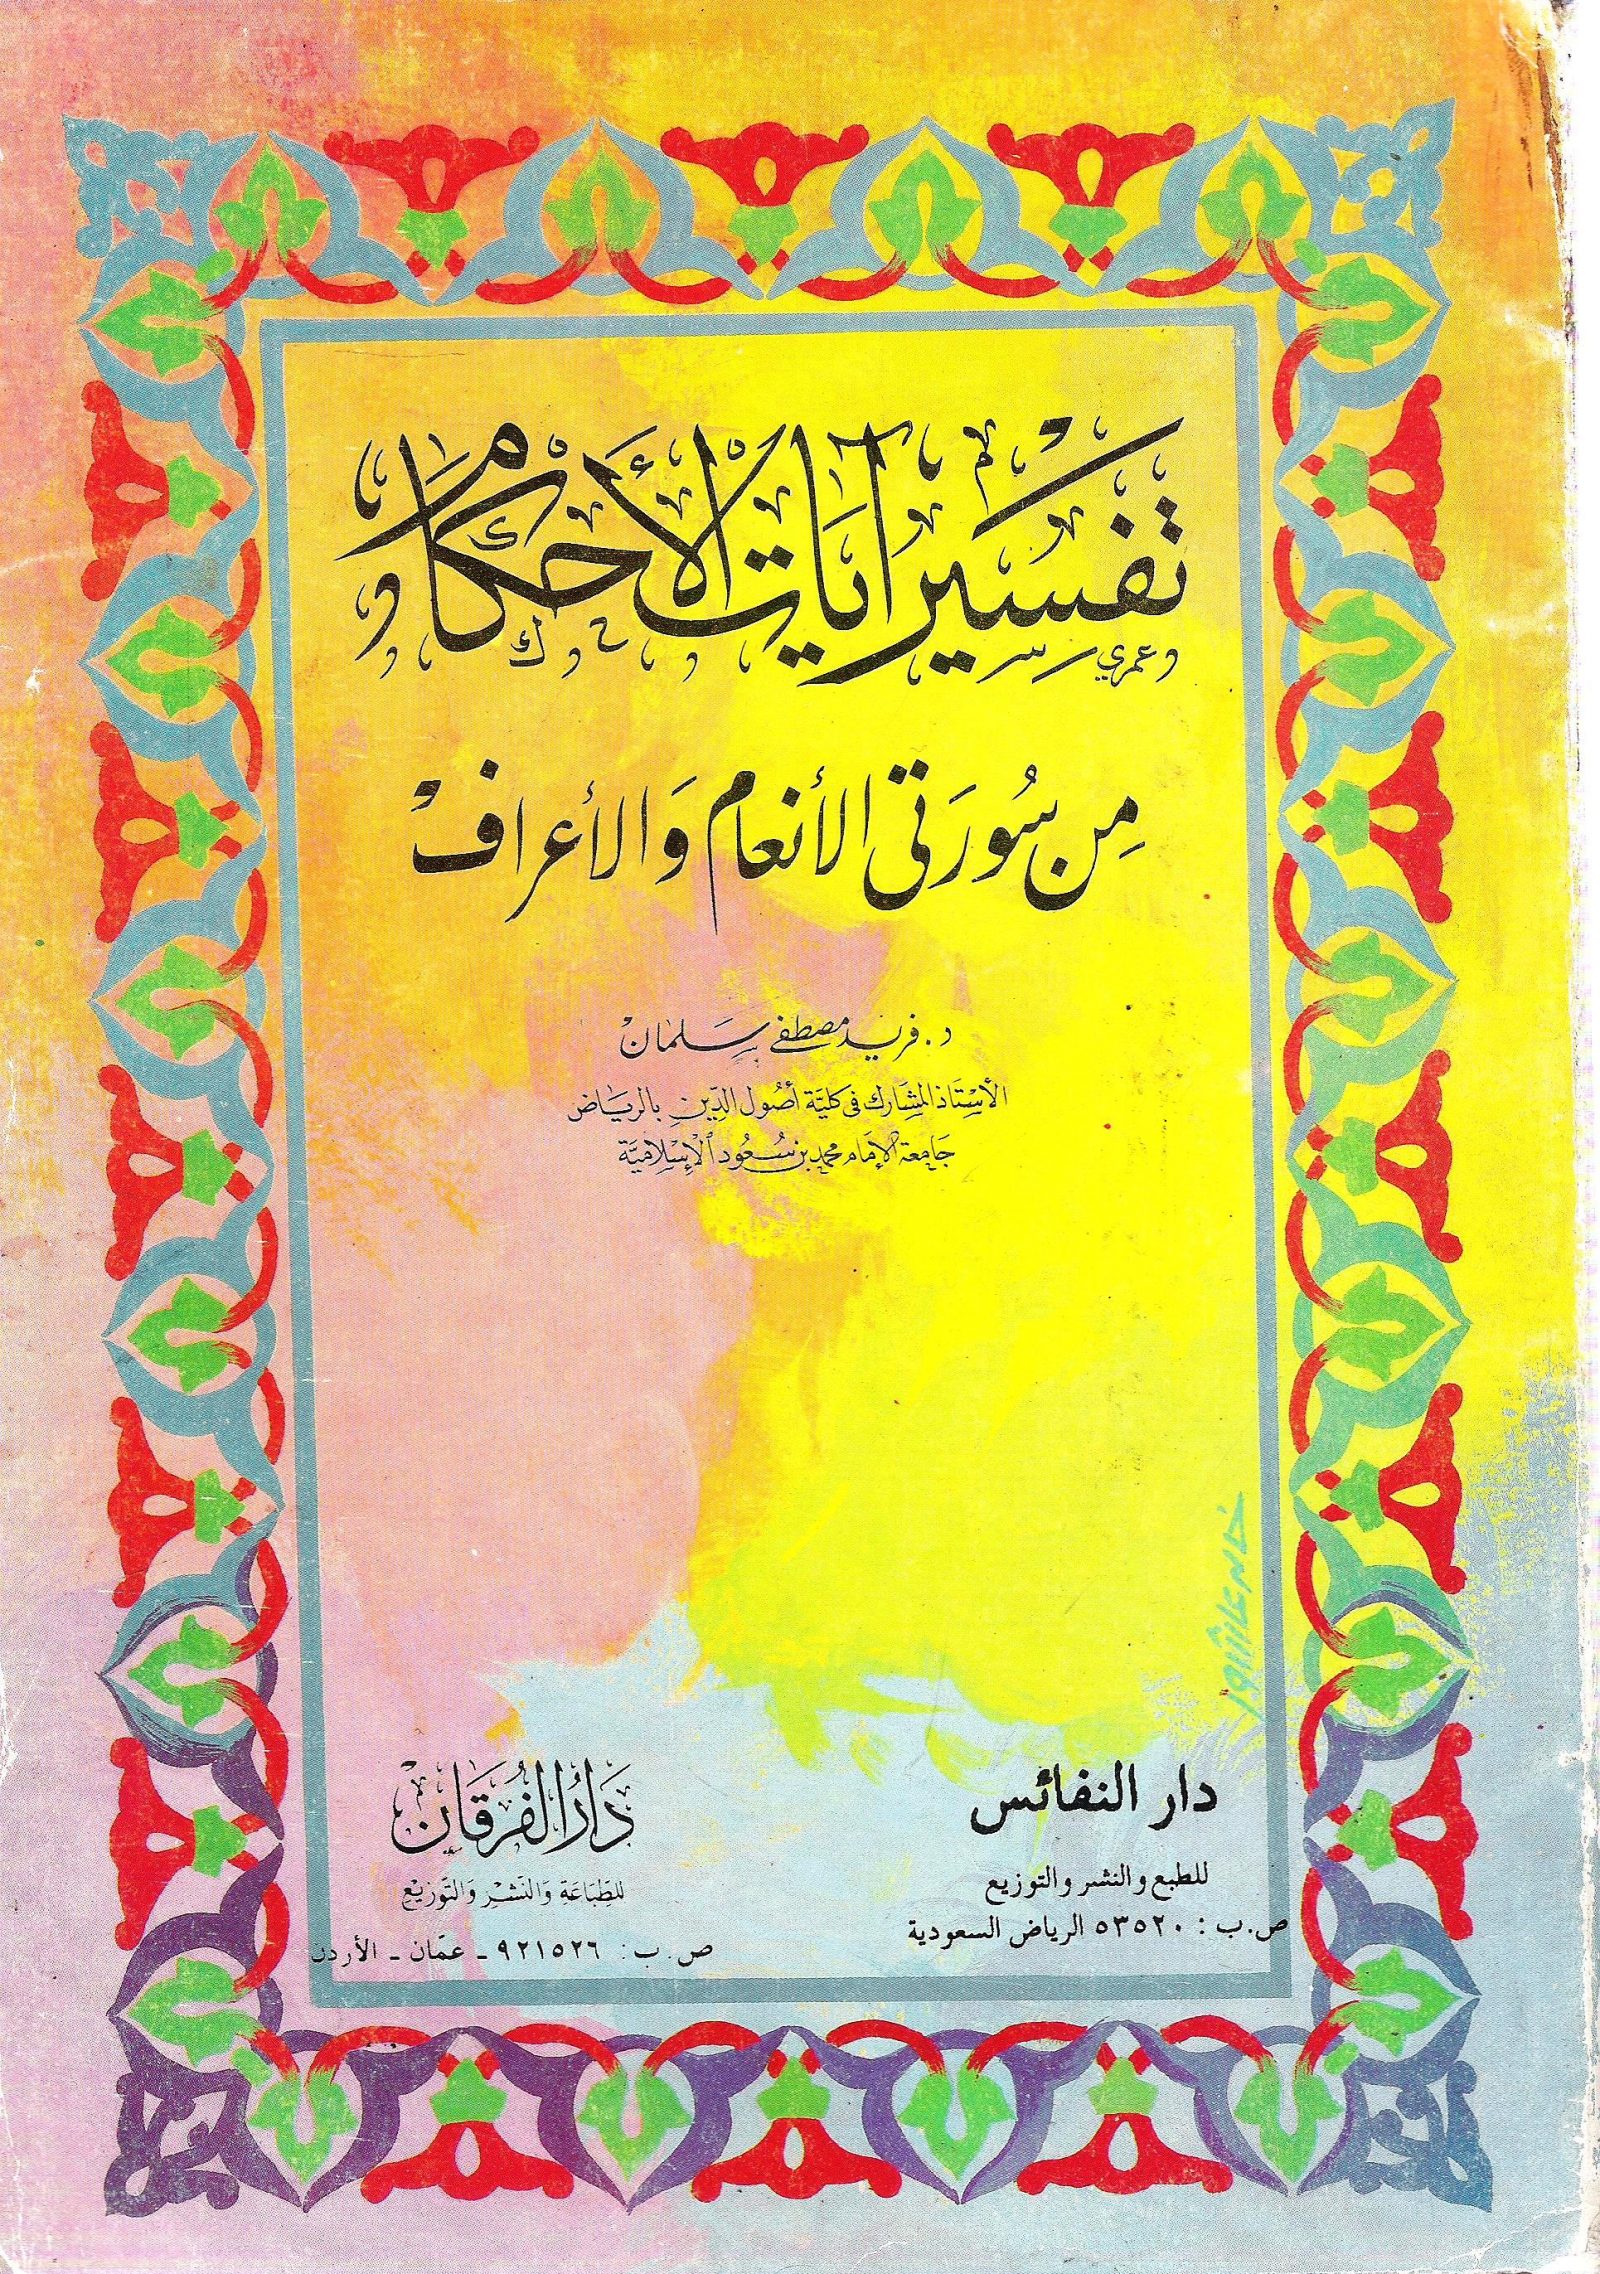 تفسير آيات الأحكام
من سورتي الأنعام والأعراف
د. فريد مصطفى سلمان
الأستاذ المشارك في كلية أصول الدين بالرياض
جامعة الإمام محمد بن سعود الإسلامية
دار النفائس
للطبع والنشر والتوزيع
ص.ب : ٥٣٥٢٠ الرياض السعودية
دَارُ الفُرقَان
للطِّبَاعَة وَالنَّشْر وَالتَّوزيْع
ص. ب : ٩٢١٥٢٦ ـ عمّان ـ الأردن